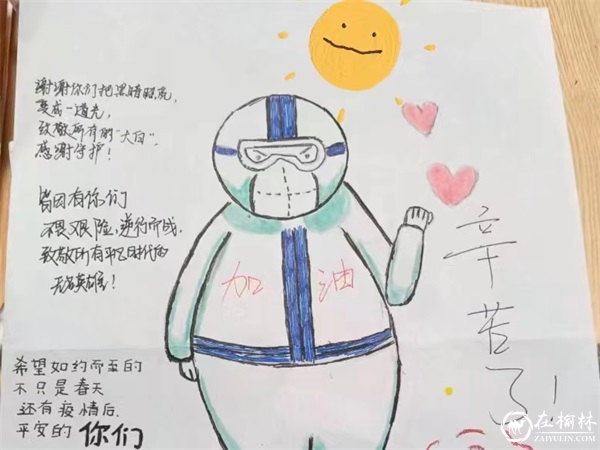 谢谢你们把黑暗照亮,
变成一道光,
致敬所有的"大白".
感谢守护!
皆因有你们
不畏艰险,逆行而战.
致敬所有平凡时代的
无名英雄!
希望如约而至的
不只是春天
还有疫情后.
平安的 你们
加 油
辛苦了!
在榆林
ZAIYULIN.COM